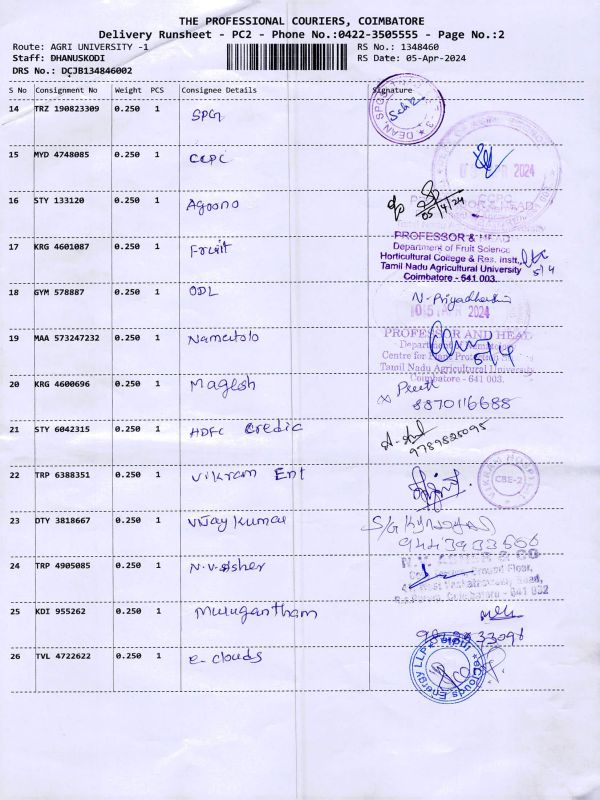 THE PROFESSIONAL COURIERS, COIMBATORE
Delivery Runsheet - PC2 - Phone No.:0422-3505555 - Page No.:2
Route: AGRI UNIVERSITY -1 RS No.: 1348460
Staff: DHANUSKODI RS Date: 05-Apr-2024
DRS No.: DCJB134846002
S No Consignment No Weight PCS Consignee Details Signature
14 TRZ 190823309 0.250 1 SPGI
DEAN, SPGS
15 MYD 4748085 0.250 1 CCPC
APR 2024
16 STY 133120 0.250 1 Agoono
05/4/24
17 KRG 4601087 0.250 1 Fruit
PROFESSOR & HEAD
Department of Fruit Science
Horticultural College & Res. Instt.,
Tamil Nadu Agricultural University
Coimbatore - 641 003.
5/4
18 GYM 578887 0.250 1 ODL
05 APR 2024
19 MAA 573247232 0.250 1 Nametolo
PROFESSOR AND HEAD
Centre for Plant Protection
Tamil Nadu Agricultural University
Coimbatore - 641 003.
5/4
20 KRG 4600696 0.250 1 Magesh
8870116688
21 STY 6042315 0.250 1 HDFC Credic
9789825095
22 TRP 6388351 0.250 1 Vikram Ent
CBE-2
23 DTY 3818667 0.250 1 Vijay Kumar
24 TRP 4905085 0.250 1 N.V. Asher
Ground Floor,
Coimbatore - 641 002
25 KDI 955262 0.250 1 Murugantham
26 TVL 4722622 0.250 1 e-clouds
eClouds Energy LLP